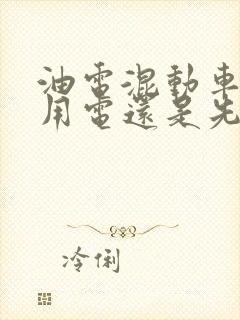 油電混動車
用電還是先
冷俐